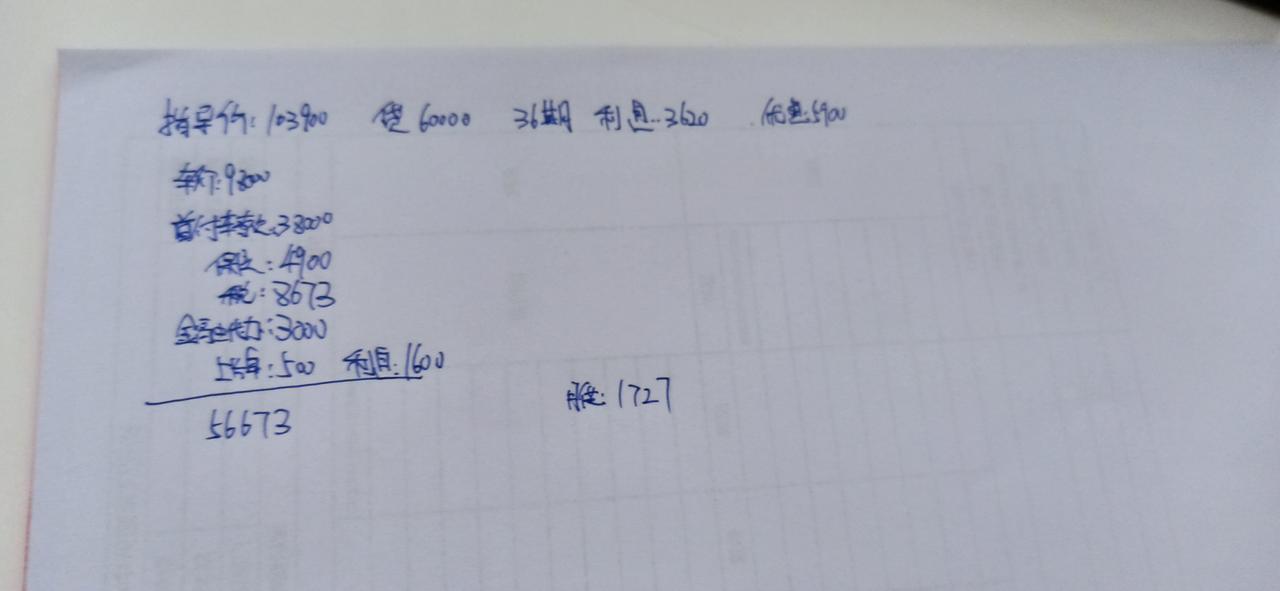 指导价:103900 贷60000 36期 利息:3620 优惠:5900
车价:98000
首付车款:38000
保险:4900
税:8673
金融代办:3000
上牌:500 利息:1600
56673 月供:1727